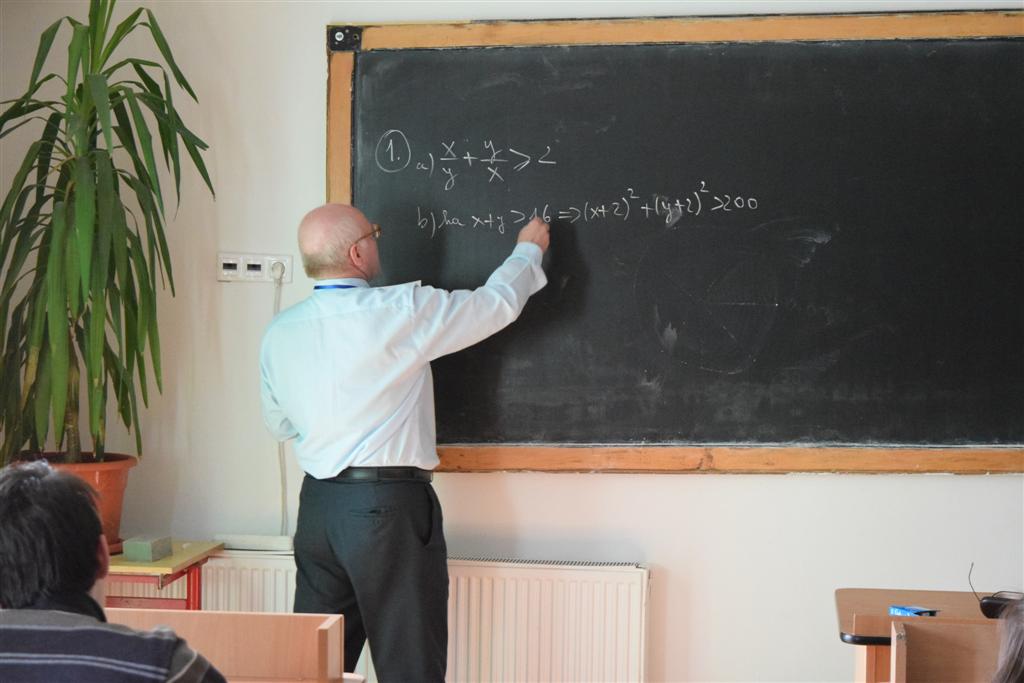 1. a) x/y + y/x ⩾ 2
b) ha x+y > 16 => (x+2)² + (y+2)² > 200